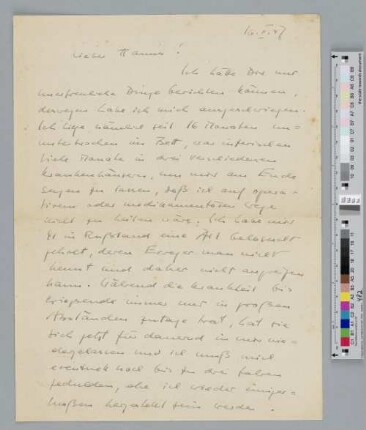 Lieber Hanns!
Ich hätte Dir nur
unerfreuliche Dinge berichten können,
deswegen habe ich mich ausgeschwiegen.
Ich liege nämlich seit 16 Monaten un-
unterbrochen im Bett, war inzwischen
Monate in drei verschiedenen
Krankenhäusern, um mir am Ende
sagen zu lassen, daß ich auf opera-
tivem oder medikamentösem Wege
nicht zu heilen wäre. Ich habe mir
in Rußland eine Art
geholt, deren Erreger man nicht
kennt und daher nicht angreifen
kann. Während die Krankheit bis
Kriegsende immer nur in großen
Abständen zutage trat, hat sie
sich jetzt für dauernd in mir nie-
dergelassen und ich muß mich
eventuell noch bis zu drei Jahren
gedulden, ehe ich wieder einiger-
maßen hergestellt sein werde.